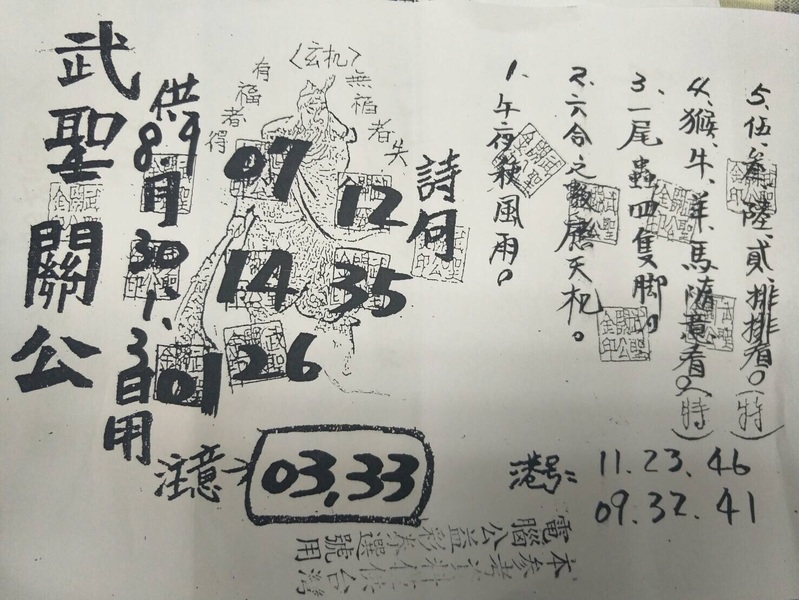 武聖關公
供8.9月30、1、3日用
有福者得
〈玄机〉
無福者失
07
12
14
35
01
26
詩句
1、午夜風雨。
2、六合之數應天机。
3、一尾蟲四隻脚。
4、猴、牛、羊、馬隨意看。(特)
5、伍、參、陸、貳排排看。(特)
注意
03,33
港号:
11.23.46
09.32.41
本參考資料僅供台灣
電腦公益彩券選號用